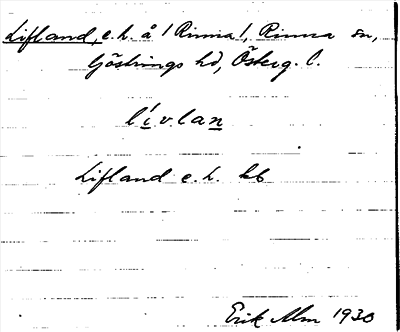 Lifland, e. l. å / Rinna /, Rinna sn,
Göstrings hd, Österg. l.
li´vlan
Lifland e. l. kb
Erik Alm 1930